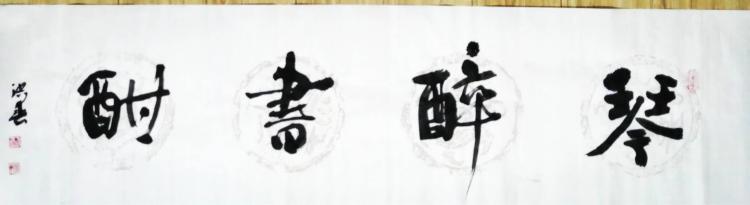 琴醉書酣